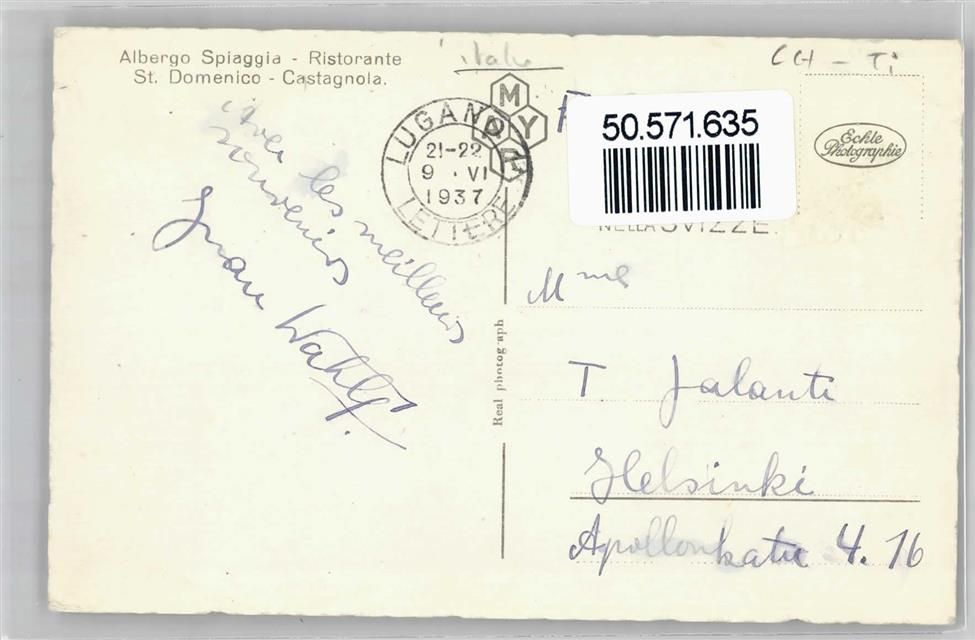 Albergo Spiaggia - Ristorante
St. Domenico - Castagnola.
italie
CH - Ti
LUGANO
21-22
9 . VI
1937
LETTERE
MAYR
50.571.635
Eckle
Photographie
NELLA SVIZZE
avec les meilleurs
souvenirs
Wahlf
Real photograph
Mme
T. Jalanti
Helsinki
Apollonkatu 4. 16